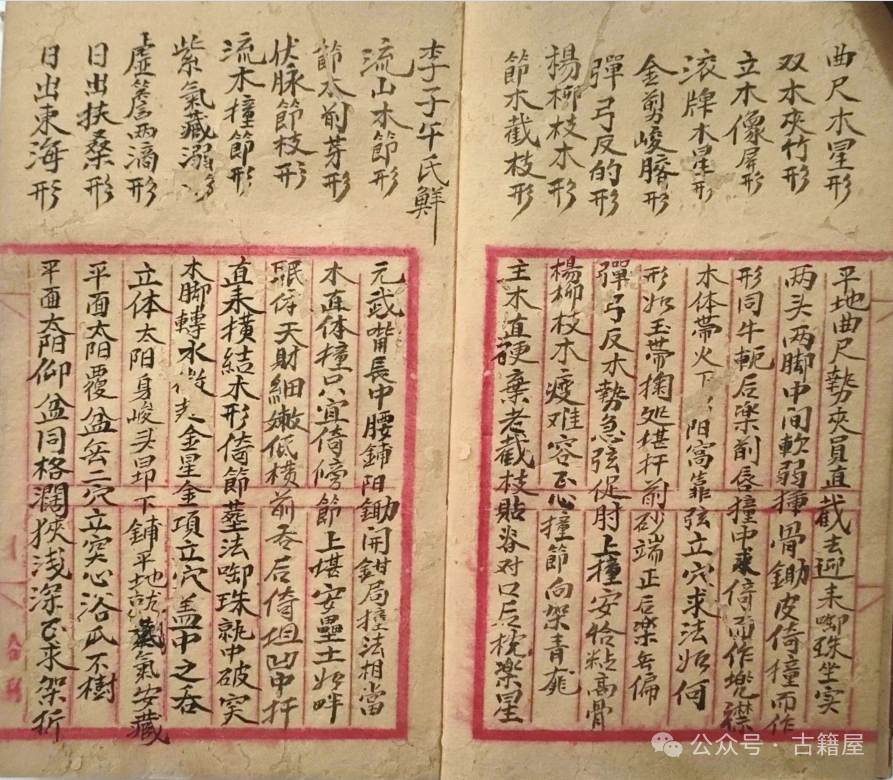 曲尺木星形
双木夾竹形
立木像屏形
滚牌木星形
金剪峻膀形
彈弓反的形
楊柳枝木形
節木截枝形
平地曲尺勢夾員直截去迎来啣珠坐实
两头两脚中间軟弱揷骨鋤皮倚撞而作
形同牛軛后楽前唇撞中求倚而作兠襟
木体帯火下阳窩靠弦立穴求法如何
形如玉带掬処堪扦前砂端正后楽無偏
彈弓反木勢急弦促肘上撞安恰粘高骨
楊柳枝木瘦难容正心撞節向架青龍
主木直硬棄老截枝貼脊对口后枕楽星
李子午氏鮮
流山木節形
節木前芽形
伏脉節枝形
流木撞節形
紫氣藏溺
虚簷两滴形
日出扶桑形
日出東海形
元武嘴長中腰鋪阳鋤开鉗局撞法相當
木直体撞只宜倚傍節上堪安壘土如畔
眠侟天財細嫩低横前吞后倚坦凹中扦
直来横結木形倚節塟法啣珠就中破突
木脚轉水微金星金項立穴盖中之吞
立体太阳身峻头昻下鋪平地就氣安藏
平面太阳覆盆無二穴立突心浴瓜不樹
平面太阳仰盆同格濶狹浅深正求架折
公众号·古籍屋